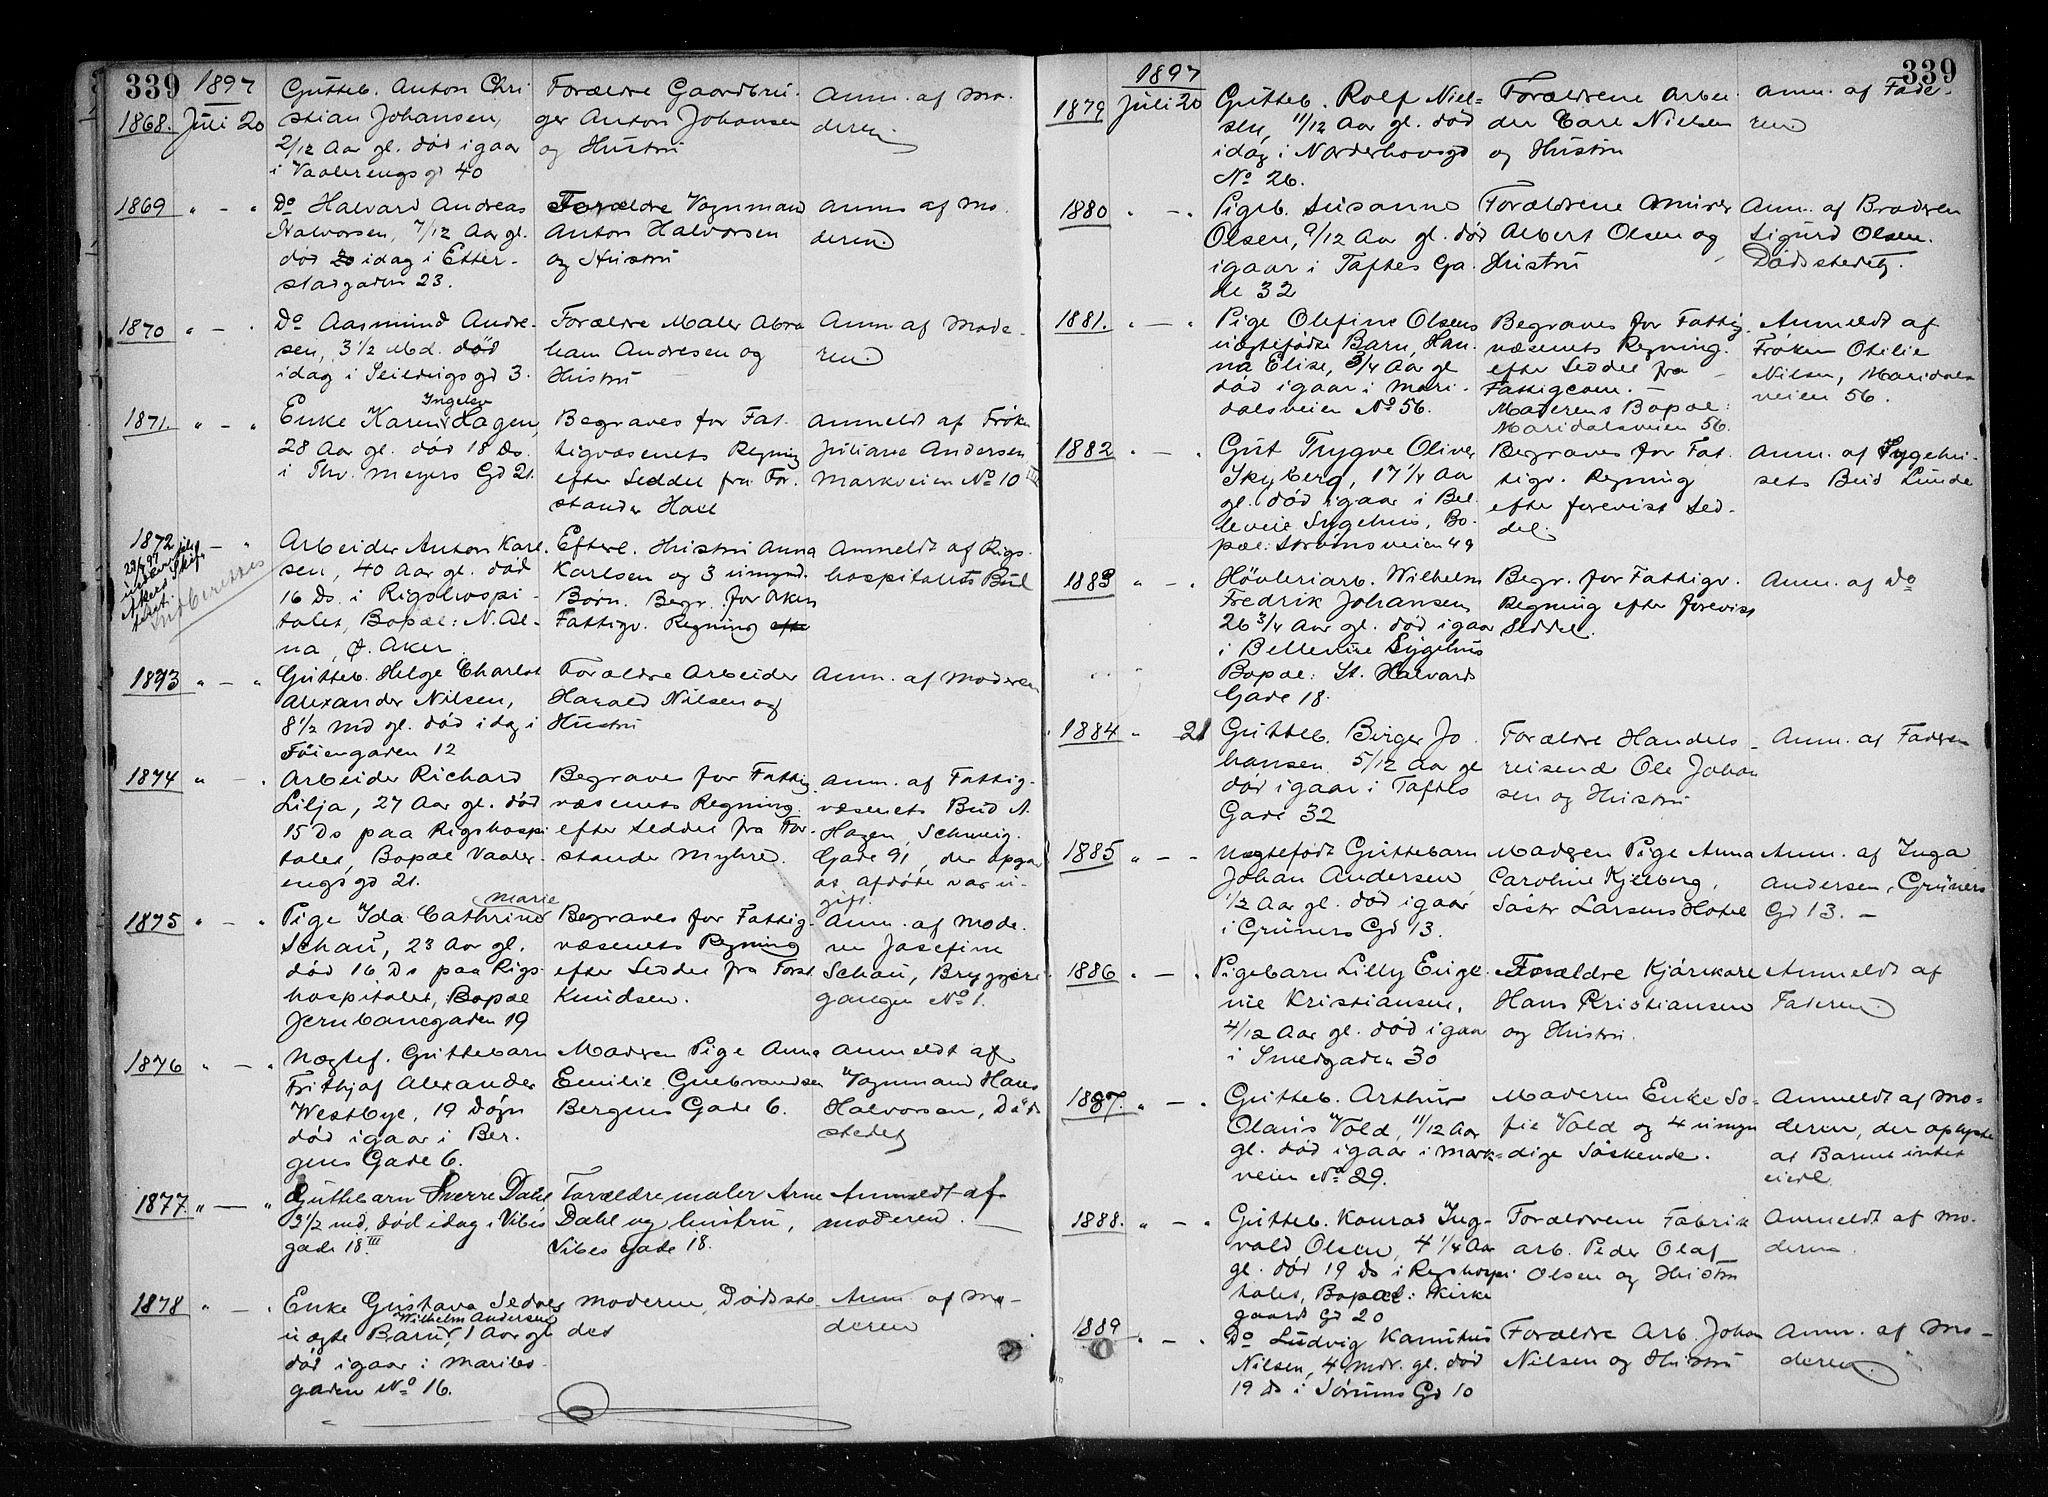 339
1897
1868. Juli 20
Gütteb. Anton Chri
stian Johansen,
2/12 Aar gl. død igaar
i Vaalerengs gd 40
Forældre Gaardbrü-
ger Anton Johansen
og Hüstrü
Anm. af Mo-
deren.
1869 " - "
Do Halvard Andreas
Halvorsen, 7/12 Aar gl.
død idag i Etter-
stadgaden 23.
Forældre Vognmand
Anton Halvorsen
og Hüstrü
Anm. af Mo-
deren.
1870 " - "
Do Aasmünd Andre-
sen, 3 1/2 Md. død
idag i Seildügsgd 3.
Forældre Maler Abra
ham Andresen og
Hüstrü
Anm. af Mode-
ren.
1871. " - "
Ingeborg
Enke Karen Hagen,
28 Aar gl. død 18 Ds.
i Thv. Meyers Gd 21.
Begraves for Fat-
tigvæsenets Regning
efter Seddel fra For-
stander Hall
Anmeldt af Frøken
Juliane Andersen
Markveien No 10 III
1872 - "
Indberettes
Arbeider Anton Karl-
sen, 40 Aar gl. død
16 Ds. i Rigshospi-
talet, Bopæl: N. Al-
na, Ø. Aker.
Efterl. Hüstrü Anna
Karlsen og 3 ümynd.
Børn. Begr. for Akers
Fattigv. Regning
Anmeldt af Rigs-
hospitalets Bud
1873 " - "
Gütteb. Helge Charles
Alexander Nilsen,
8 1/2 Md gl. død idag i
Töiengaden 12
Forældre Arbeider
Harald Nilsen og
Hüstrü
Anm. af Moderen
1874 " - "
Arbeider Richard
Lilja, 27 Aar gl. død
15 Ds paa Rigshospi
talet, Bopæl Vaaler-
engsgd 21.
Begraves for Fattig-
væsenets Regning
efter Seddel fra For-
stander Myhre.
Anm. af Fattig-
væsenets Bud A.
Hagen, Schweig.
Gade 91, der opgav
at afdøde var ü-
gift.
1875 " - "
Marie
Pige Ida Cathrine
Schaü, 23 Aar gl.
død 16 Ds paa Rigs-
hospitalet, Bopæl
Jernbanegaden 19
Begraves for Fattig-
væsenets Regning
efter Seddel fra Forst.
Knüdsen.
Anm. af Mode-
ren Josefine
Schaü, Bryggeri-
gangen No 1.
1876 " - "
Uægtef. Güttebarn
Frithjof Alexander
Westbye, 19 Døgn
død igaar i Ber-
gens Gade 6.
Moderen Pige Anna
Emilie Gulbrandsen
Bergens Gade 6.
Anmeldt af
Vognmand Hans
Halvorsen, Døds
stedet
1877. " - "
Güttebarn Sverre Dahl
3 1/2 md. død idag i Vibes
gade 18. III
Forældre maler Arne
Dahl og hüstrü,
Vibes gade 18.
Anmeldt af
moderen.
1878 " - "
Enke Güstava Sedvals
Wilhelm Andersen
üægte Barn, 1 Aar gl
død igaar i Maribo-
gaden No 16.
Moderen, Dødsste-
det
Anm. af Mo-
deren
339
1897
1879 Juli 20
Gütteb. Rolf Niel-
sen, 11/12 Aar gl. død
idag i Norderhovsgd
No 26.
Forældrene Arbei-
der Carl Nielsen
og Hüstrü
Anm. af Fade-
ren
1880 " - "
Pigeb. Süsanne
Olsen, 9/12 Aar gl. død
igaar i Taftes Ga-
de 32
Forældrene Mürer
Albert Olsen og
Hüstrü
Anm. af Broderen
Sigurd Olsen.
Dødsstedet.
1881. " - "
Pige Olefine Olsens
üægtefødte Barn, Han-
na Elise, 3/4 Aar gl
død igaar i Mari-
dalsveien No 56.
Begraves for Fattig-
væsenets Regning
efter Seddel fra
Fattigcom. -
Moderens Bopæl:
Maridalsveien 56.
Anmeldt af
Frøken Otilie
Nilsen, Maridals
veien 56.
1882 " - "
Güt Trygve Oliver
Skyberg, 17 1/4 Aar
gl. død igaar i Bel-
levue Sygehus, Bo-
pæl: Strømsveien 49
Begraves for Fat-
tigv. Regning
efter forevist Sed-
del.
Anm. af Sygehu-
sets Bud Lunde
1883 " - "
Høvleriarb. Wilhelm
Fredrik Johansen
26 3/4 Aar gl. død igaar
i Bellevue Sygehus
Bopæl: St. Halvards
Gade 18.
Begr. for Fattigv.
Regning efter forevist
Seddel.
Anm. af Do
1884 " 21
Gütteb. Birger Jo-
hansen 5/12 Aar gl
død igaar i Taftes
Gade 32
Forældre Handels-
reisende Ole Johan
sen og Hüstrü
Anm. af Faderen
1885 " - "
Uægtefødt Güttebarn
Johan Andersen
1/2 Aar gl. død igaar
i Grüners Gd 13.
Moderen Pige Anna
Caroline Kjelberg,
Søstr Larsens Hotel
Anm. af Inga
Andersen, Grüners
Gd 13. -
1886 " - "
Pigebarn Lilly Euge-
nie Kristiansen,
4/12 Aar gl. død igaar
i Smedgaden 30
Forældre Kjørekarl
Hans Kristiansen
og Hüstrü.
Anmeldt af
Faderen.
1887. " - "
Gütteb. Arthür
Olaüs Vold, 11/12 Aar
gl. død igaar i Mark-
veien No 29.
Moderen Enke So-
fie Vold og 4 ümyn
dige Søskende.
Anmeldt af Mo-
deren, der oplyste
at Barnet intet
eiede.
1888. " - "
Gütteb. Konrad Ing-
vald Olsen, 4 1/4 Aar
gl. død 19 Ds i Rigshospi
talet, Bopæl: Kirke
gaards Gd 20
Forældrene Fabrik
arb. Peder Olaf
Olsen og Hüstrü
Anmeldt af Mo-
deren.
1889 " - "
Do Lüdvig Kamitüs
Nilsen, 4 mdr. gl. død
19 ds i Sørums Gd 10
Forældre Arb. Johan
Nilsen og Hüstrü
Anm. af Mo-
deren.